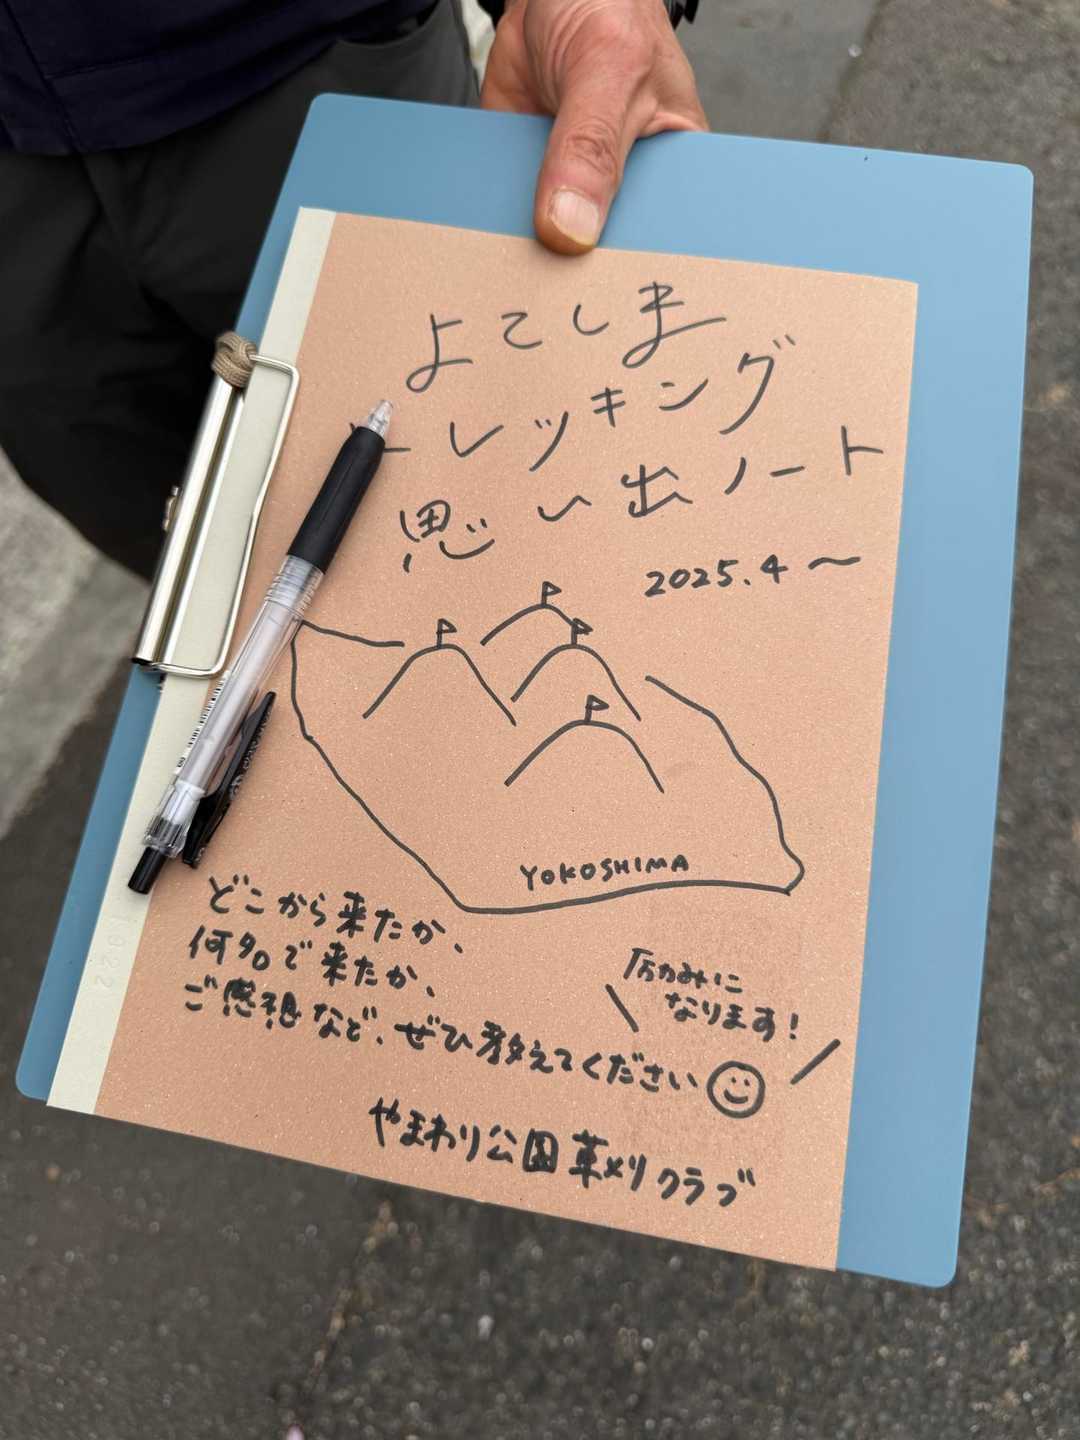 よこしま
トレッキング
思い出ノート
2025.4〜
YOKOSHIMA
どこから来たか、
何名で来たか、
ご感想など、ぜひ教えてください
励みに
なります!
やまわり公園草刈りクラブ